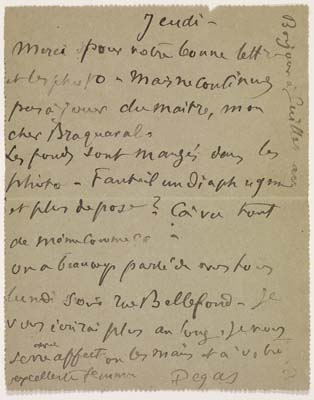 Jeudi -
Merci pour votre bonne lettre
et les photo - Mais ne continuez
pas à jouer du maître, mon
cher Braquaval.
Les fonds sont mangés dans les
photo - Faut-il un diaphragme
et plus de pose ?
de même
on a beaucoup parlé de vous tous
lundi soir rue Bellefond - Je
vous écrirai plus au long. Je vous
serre affect on les mains et à votre
excellente femme
Degas
Bonjour à